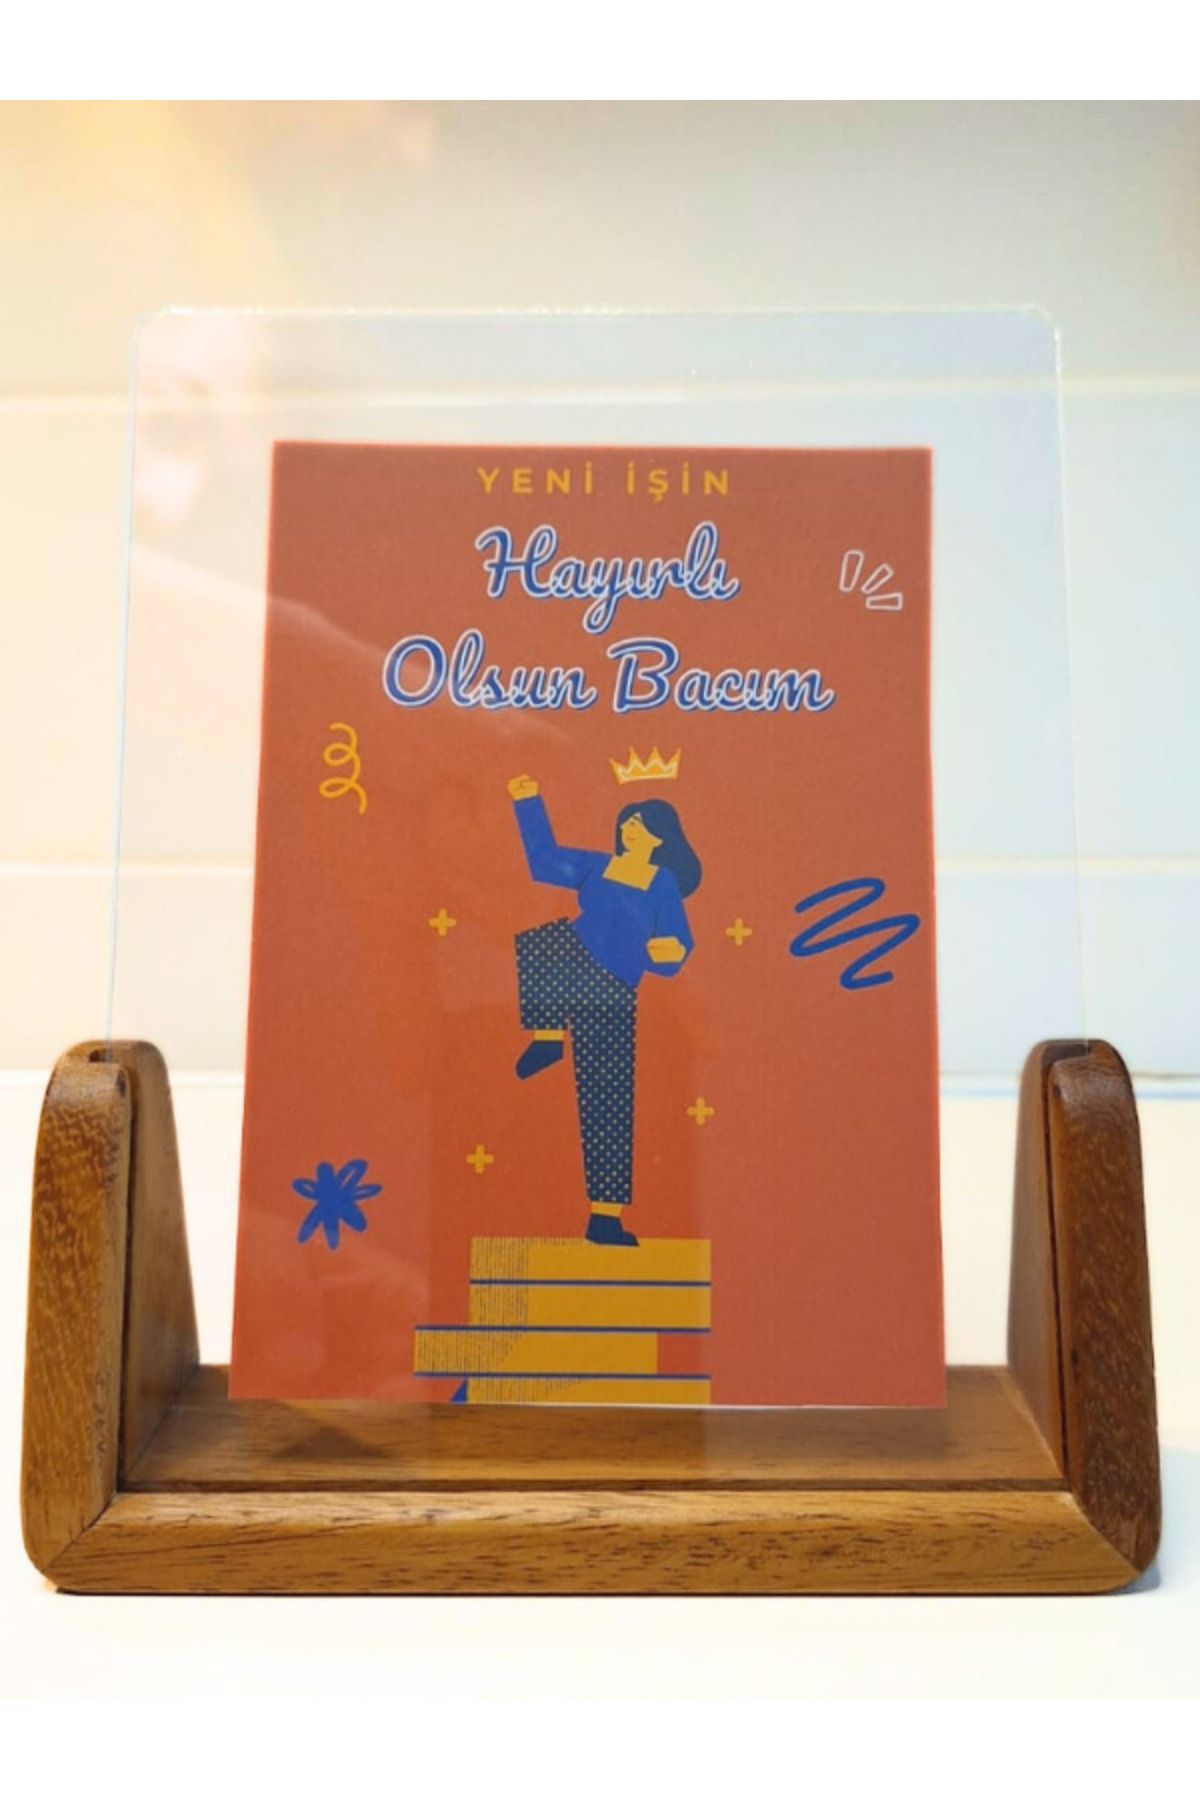 YENİ İŞİN
Hayırlı
Olsun Bacım